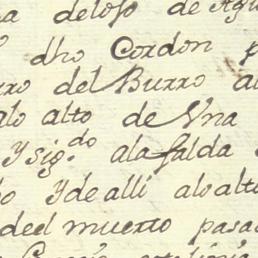 a deloso de Agu
dho Cordon p
rro del Burro al
alo alto de Vna
y sig.do ala falda
o y de alli alo alto
deel muerto pasa